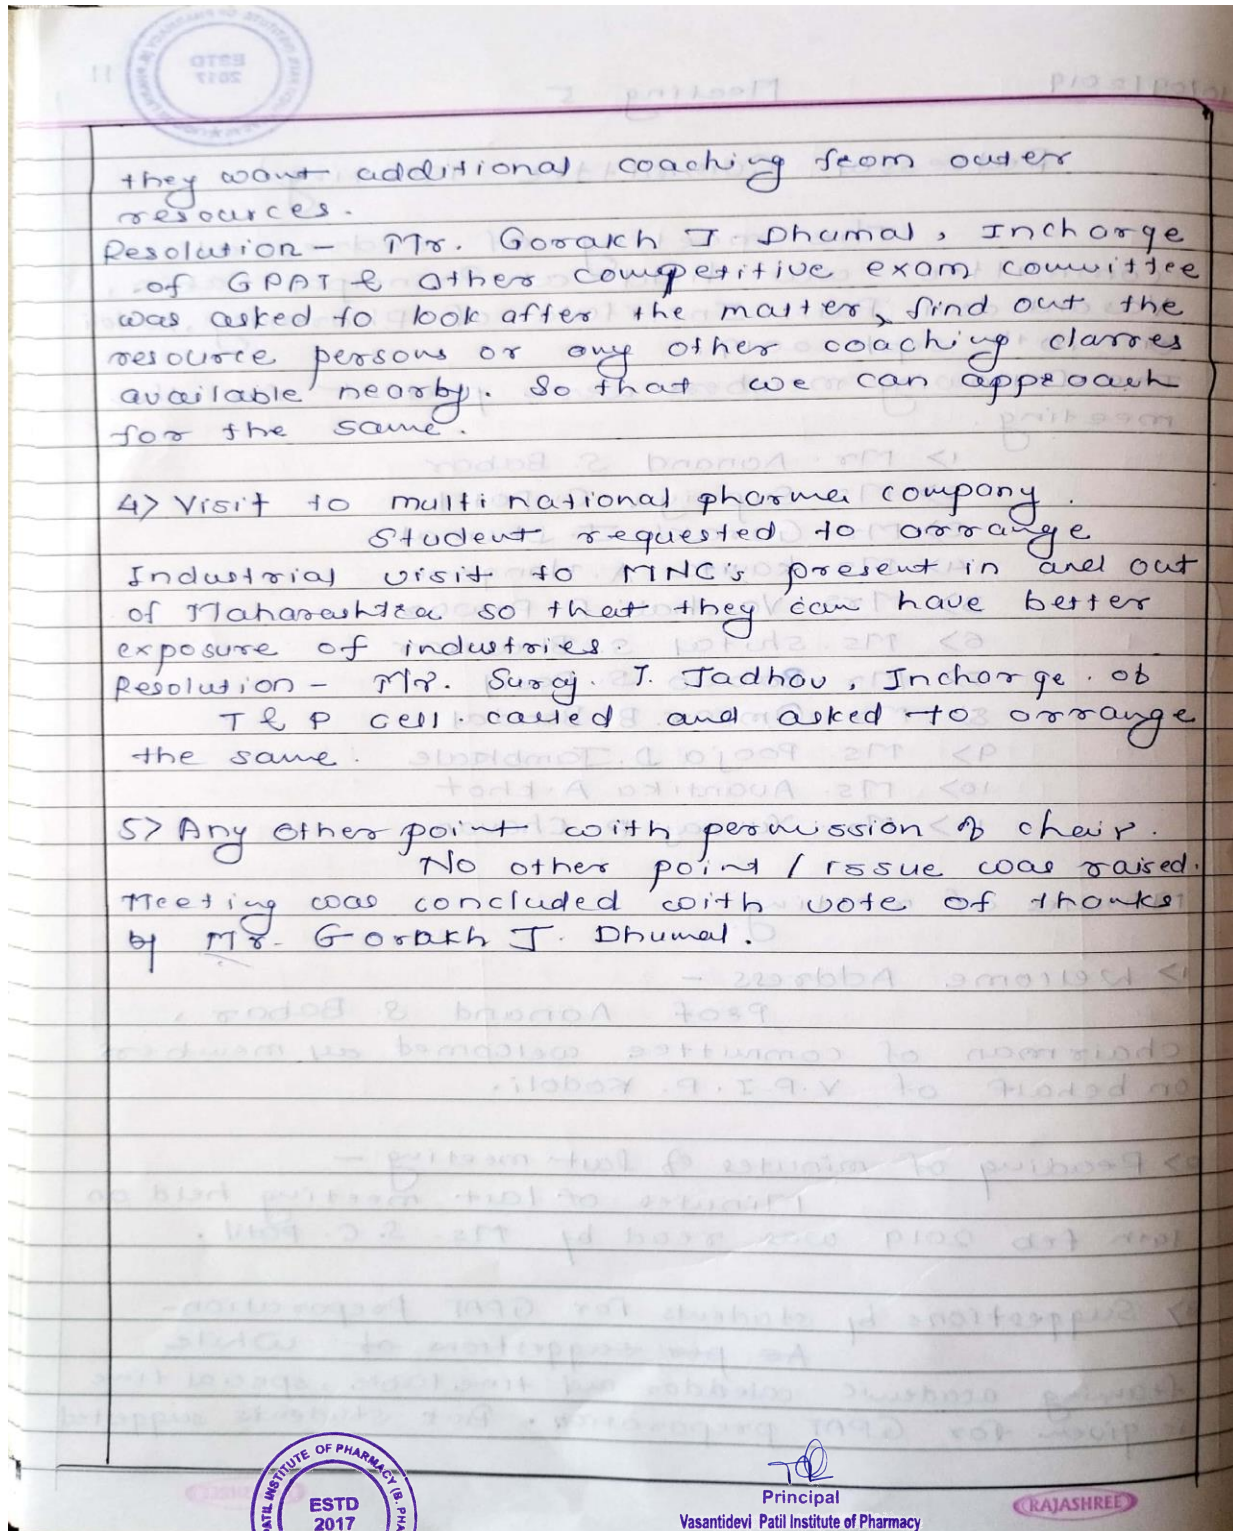 they want additional coaching from outer
resources.
Resolution - Mr. Gorakh J Dhumal, Incharge
of GPAT & other competitive exam committee
was asked to look after the matter, find out the
resource persons or any other coaching classes
available nearby. So that we can approach
for the same.
4> Visit to multinational pharma company.
Student requested to arrange
Industrial visit to MNC's present in and out
of Maharashtra so that they can have better
exposure of industries.
Resolution - Mr. Suraj. T. Jadhav, Incharge of
T & P cell called and asked to arrange
the same.
5> Any other point with permission of chair.
No other point / issue was raised.
Meeting was concluded with vote of thanks
by Mr. Gorakh J. Dhumal.
PATIL INSTITUTE OF PHARMACY (B. PHA
ESTD
2017
Principal
Vasantidevi Patil Institute of Pharmacy
RAJASHREE